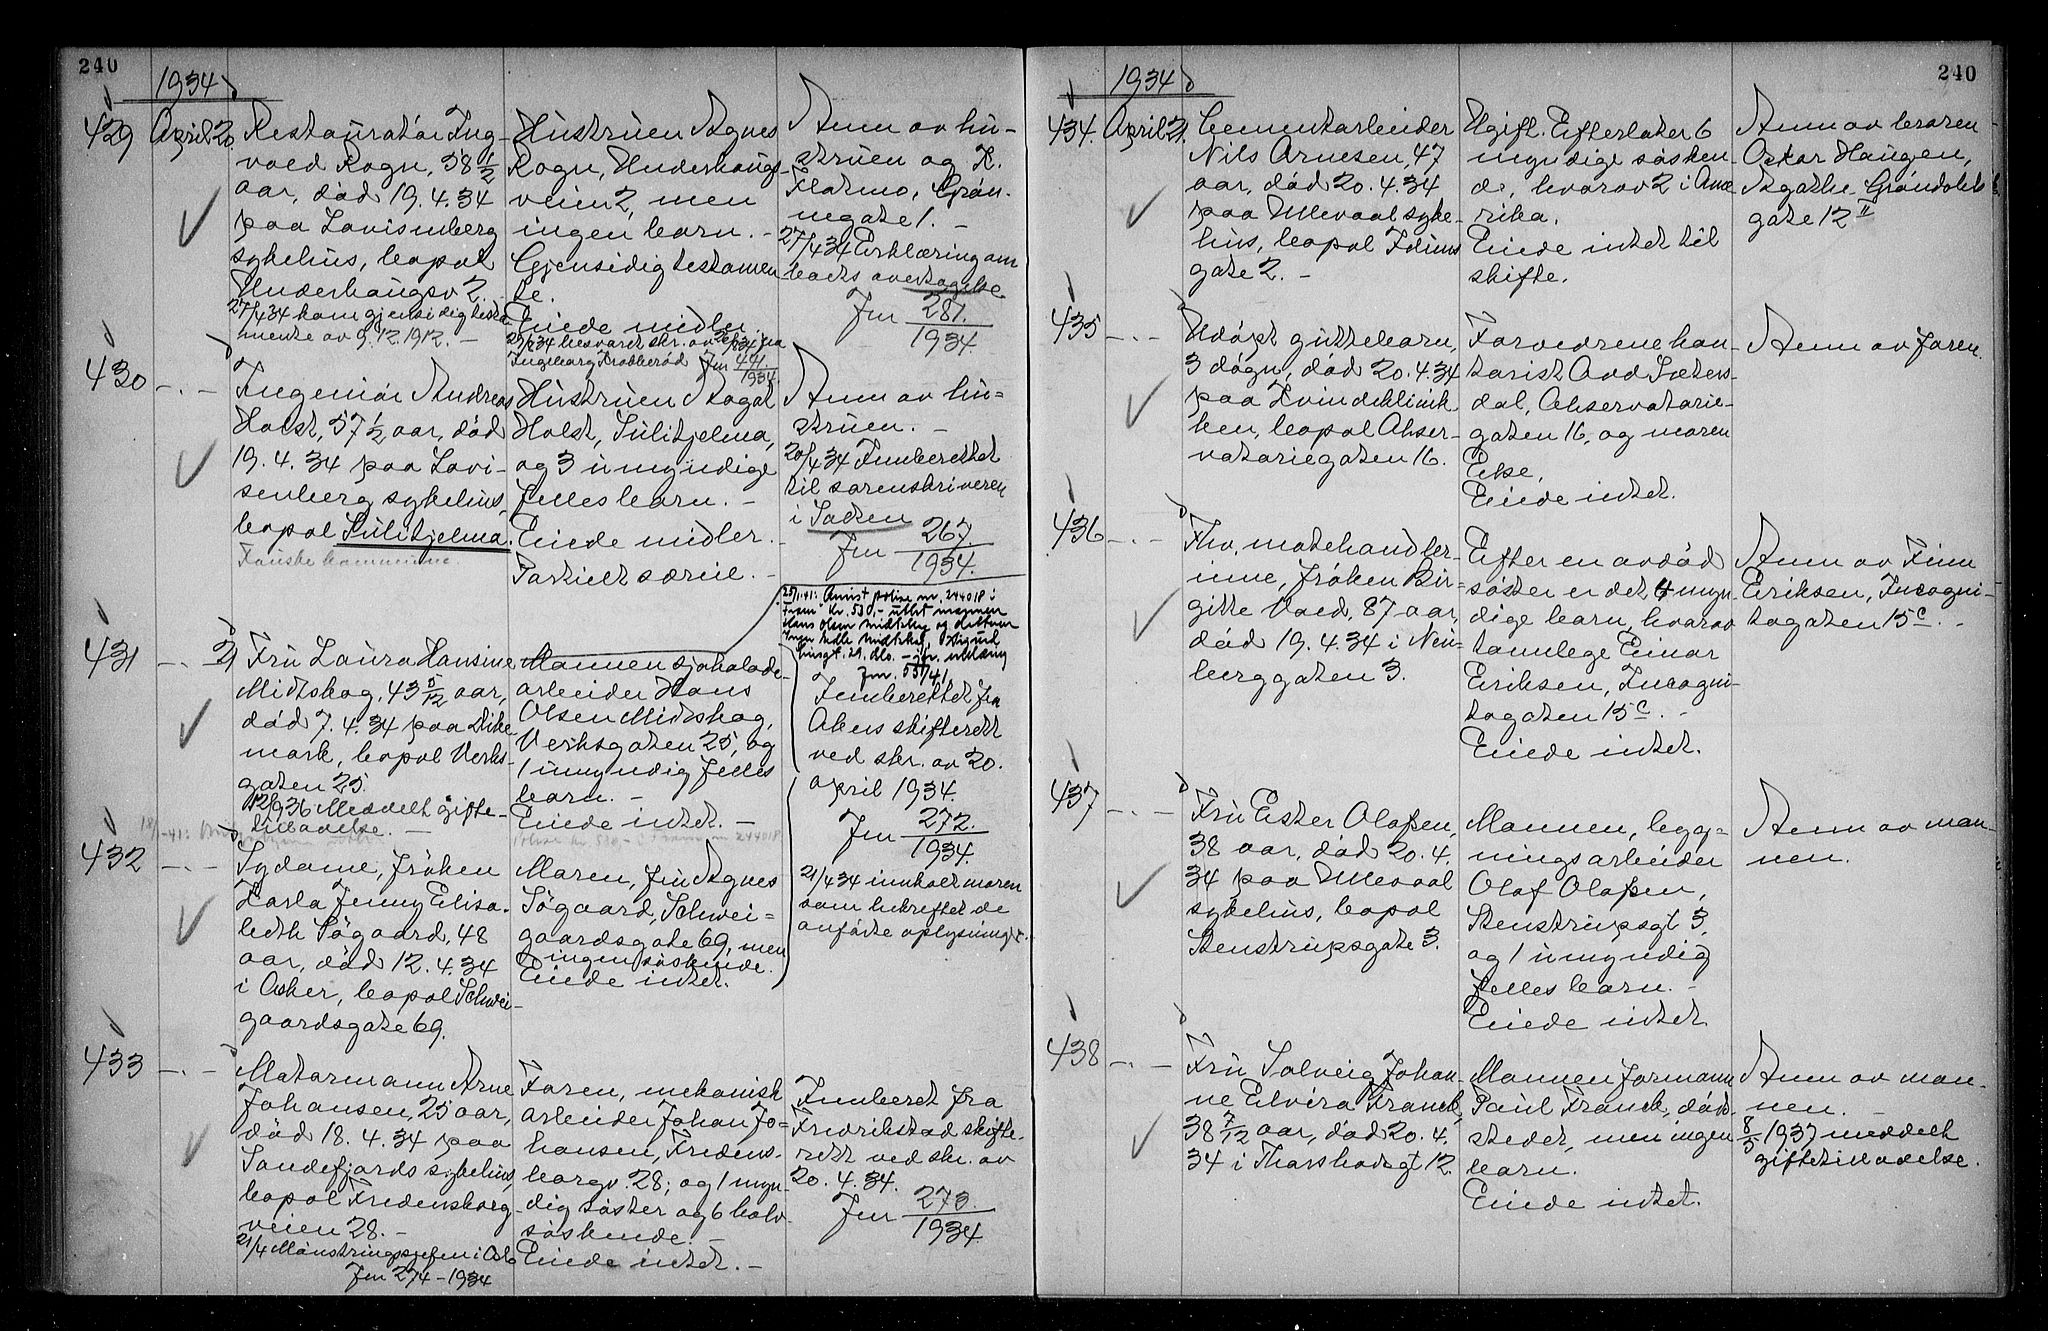 240
1934
429
April 20.
Restauratør Ing-
vald Rogn, 58 1/2
aar, død 19.4.34
paa Lovisenberg
sykehus, bopæl
Underhaugsv 2.
27/4 34 kom gjensidig testa-
mente av 9.12.1912. –
Hustruen Agnes
Rogn, Underhaugs-
veien 2, men
ingen barn. –
Gjensidig testamen
te.
Eiede midler.
Ingeborg Krabberød Jnr 441/1934.
Anm av hu-
struen og K.
Flatmo, Grøn-
negate 1. –
27/4 34 Erklæring om
boets overtagelse
Jnr 281./1934.
430
– . –
Ingeniør Andreas
Holst, 57 1/2 aar, død
19.4.34 paa Lovi-
senberg sykehus,
bopæl Sulitjelma.
Fauske kommune.
Hustruen Magal
Holst, Sulitjelma,
og 3 umyndige
felles barn. –
Eiede midler. –
Partielt særeie. –
Anm av hu-
struen. –
20/4 34 Innberettet
til sorenskriveren
i Salten
Jnr 267./1934.
431
– . – 21
Fru Laura Hansine
Midtskog, 43 5/12 aar,
død 7.4.34 paa Dike
mark, bopæl Verks-
gaten 25.
12/9 36 Meddelt gifte-
tilladelse. –
Mannen sjokolade-
arbeider Hans
Olsen Midtskog,
Verksgaten 25, og
1 umyndig felles
barn. –
Eiede intet. –
25/1-41: Anvist polise nr. 244018 i
"Fram" kr. 530.- utlet mannen
Hans Olsen Midtskog og datteren
Jnr. 55/41.
Innberettet fra
Akers skifterett
ved skr. av 20.
april 1934.
Jnr 272./1934.
21/4 34 innkalt moren
som bekreftet de
anførte oplysninger.
432
– . –
Sydame, frøken
Karla Jenny Elisa-
beth Søgaard, 48
aar, død 12.4.34
i Asker, bopæl Schwei-
gaardsgate 69.
Moren, fru Agnes
Søgaard, Schwei=
gaardsgate 69, men
ingen søskende.
Eiede intet.
433
– . –
Matormann Arne
Johansen, 25 aar,
død 18.4.34 paa
Sandefjords sykehus,
bopæl Fredensborg-
veien 28. –
21/4 Mønstringssjefen i Oslo
Jnr 274 – 1934
Faren, mekanisk
arbeider Johan Jo=
hansen, Fredens-
borgv. 28; og 1 myn-
dig søster og 6 halv-
søskende. –
Eiede intet. –
Innberet fra
Fredrikstad skifte-
rett ved skr. av
20.4.34.
Jnr 273./1934.
240
1934
434.
April 21.
Cementarbeider
Nils Arnesen, 47
aar, død 20.4.34
paa Ullevaal syke-
hus, bopæl Iduns
gate 2. –
Ugift. Efterlater 6
myndige søsken-
de, hvorav 2 i Ame
rika.
Eiede intet til
skifte.
Anm av broren
Oskar Haugen,
Agathe Grøndahls
gate 12 II
435
– . –
Udøpt guttebarn,
3 døgn, død 20.4.34
paa Kvindeklinik-
ken, bopæl Obser-
vatoriegaten 16.
Forældrene kon-
torist Odd Sæters-
dal, Observatorie-
gaten 16, og moren
Else.
Eiede intet.
Anm av faren.
436
– . –
Fhv. motehandler-
inne, frøken Bir=
gitte Vold, 87 aar,
død 19.4.34 i Neu-
berggaten 3.
Efter en avdød
søster er det 4 myn-
dige barn, hvorav
tannlege Einar
Eriksen, Incogni-
togaten 15 c. –
Eiede intet.
Anm av Finn
Eriksen, Incogni-
togaten 15 c. –
437
– . –
Fru Ester Olafsen,
38 aar, død 20.4.
34 paa Ullevaal
sykehus, bopæl
Stenstrupsgate 3.
Mannen, bygg=
ningsarbeider
Olaf Olafsen,
Stenstrupsgt 3,
og 1 umyndig
felles barn. –
Eiede intet
Anm av man-
nen.
438
– . –
Fru Solveig Johan-
ne Elvira Franck,
38 7/12 aar, død 20.4.
34 i Thorshovsgt 12.
Mannen formann
Paul Franck, døds-
stedet, men ingen
barn.
Eiede intet.
Anm av man-
nen. –
8/5 1937 meddelt
giftetilladelse.